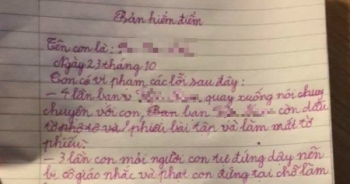 Bản kiểm điểm
Tên con là:
Ngày 23 tháng 10
Con có vi phạm các lỗi sau đây:
- 4 lần bạn quay xuống nói chuyện
chuyện với con, Bạn còn dấu
và phiếu bài tập và làm mất tờ
phiếu.
- 3 lần con mỏi người con tự đứng dậy nên
bị cô giáo nhắc và phạt con đứng tại chỗ làm